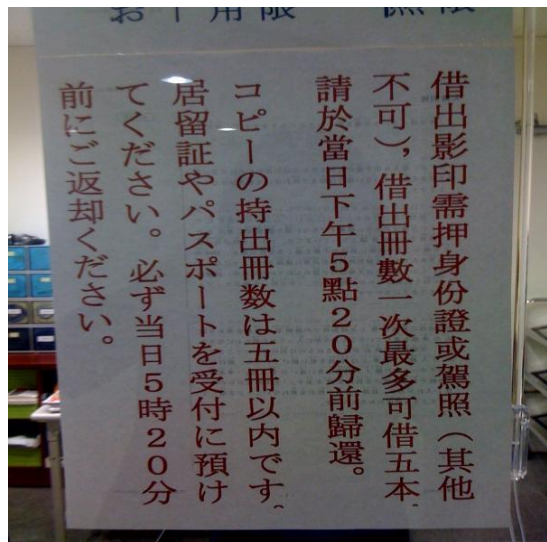 借出影印需押身份證或駕照(其他
不可),借出冊數一次最多可借五本,
請於當日下午5點20分前歸還。
コピーの持出冊数は五冊以内です。
居留証やパスポートを受付に預け
てください。必ず当日5時20分
前にご返却ください。